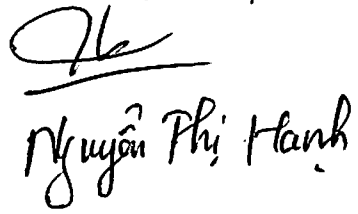 Nguyễn Thị Hạnh